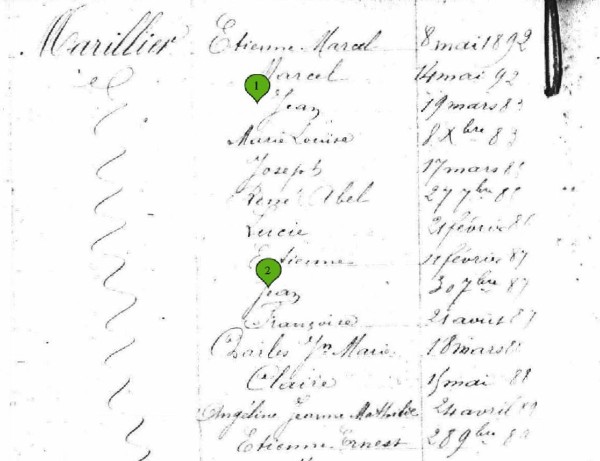 Marillier Etienne Marcel 8 mai 1892
id Marcel 14 mai 92
1 Jean 19 mars 83
Marie Louise 8 Xbre 83
Joseph 17 mars
René Abel 27 7bre
Lucie 21 février 86
Etienne 11 février 87
2 Jean 30 7bre 87
Françoise 21 août 87
Charles Jn Marie 18 mars
Claire 15 mai 88
Angéline Jeanne Mathilde 24 avril 89
Etienne Ernest 28 9bre